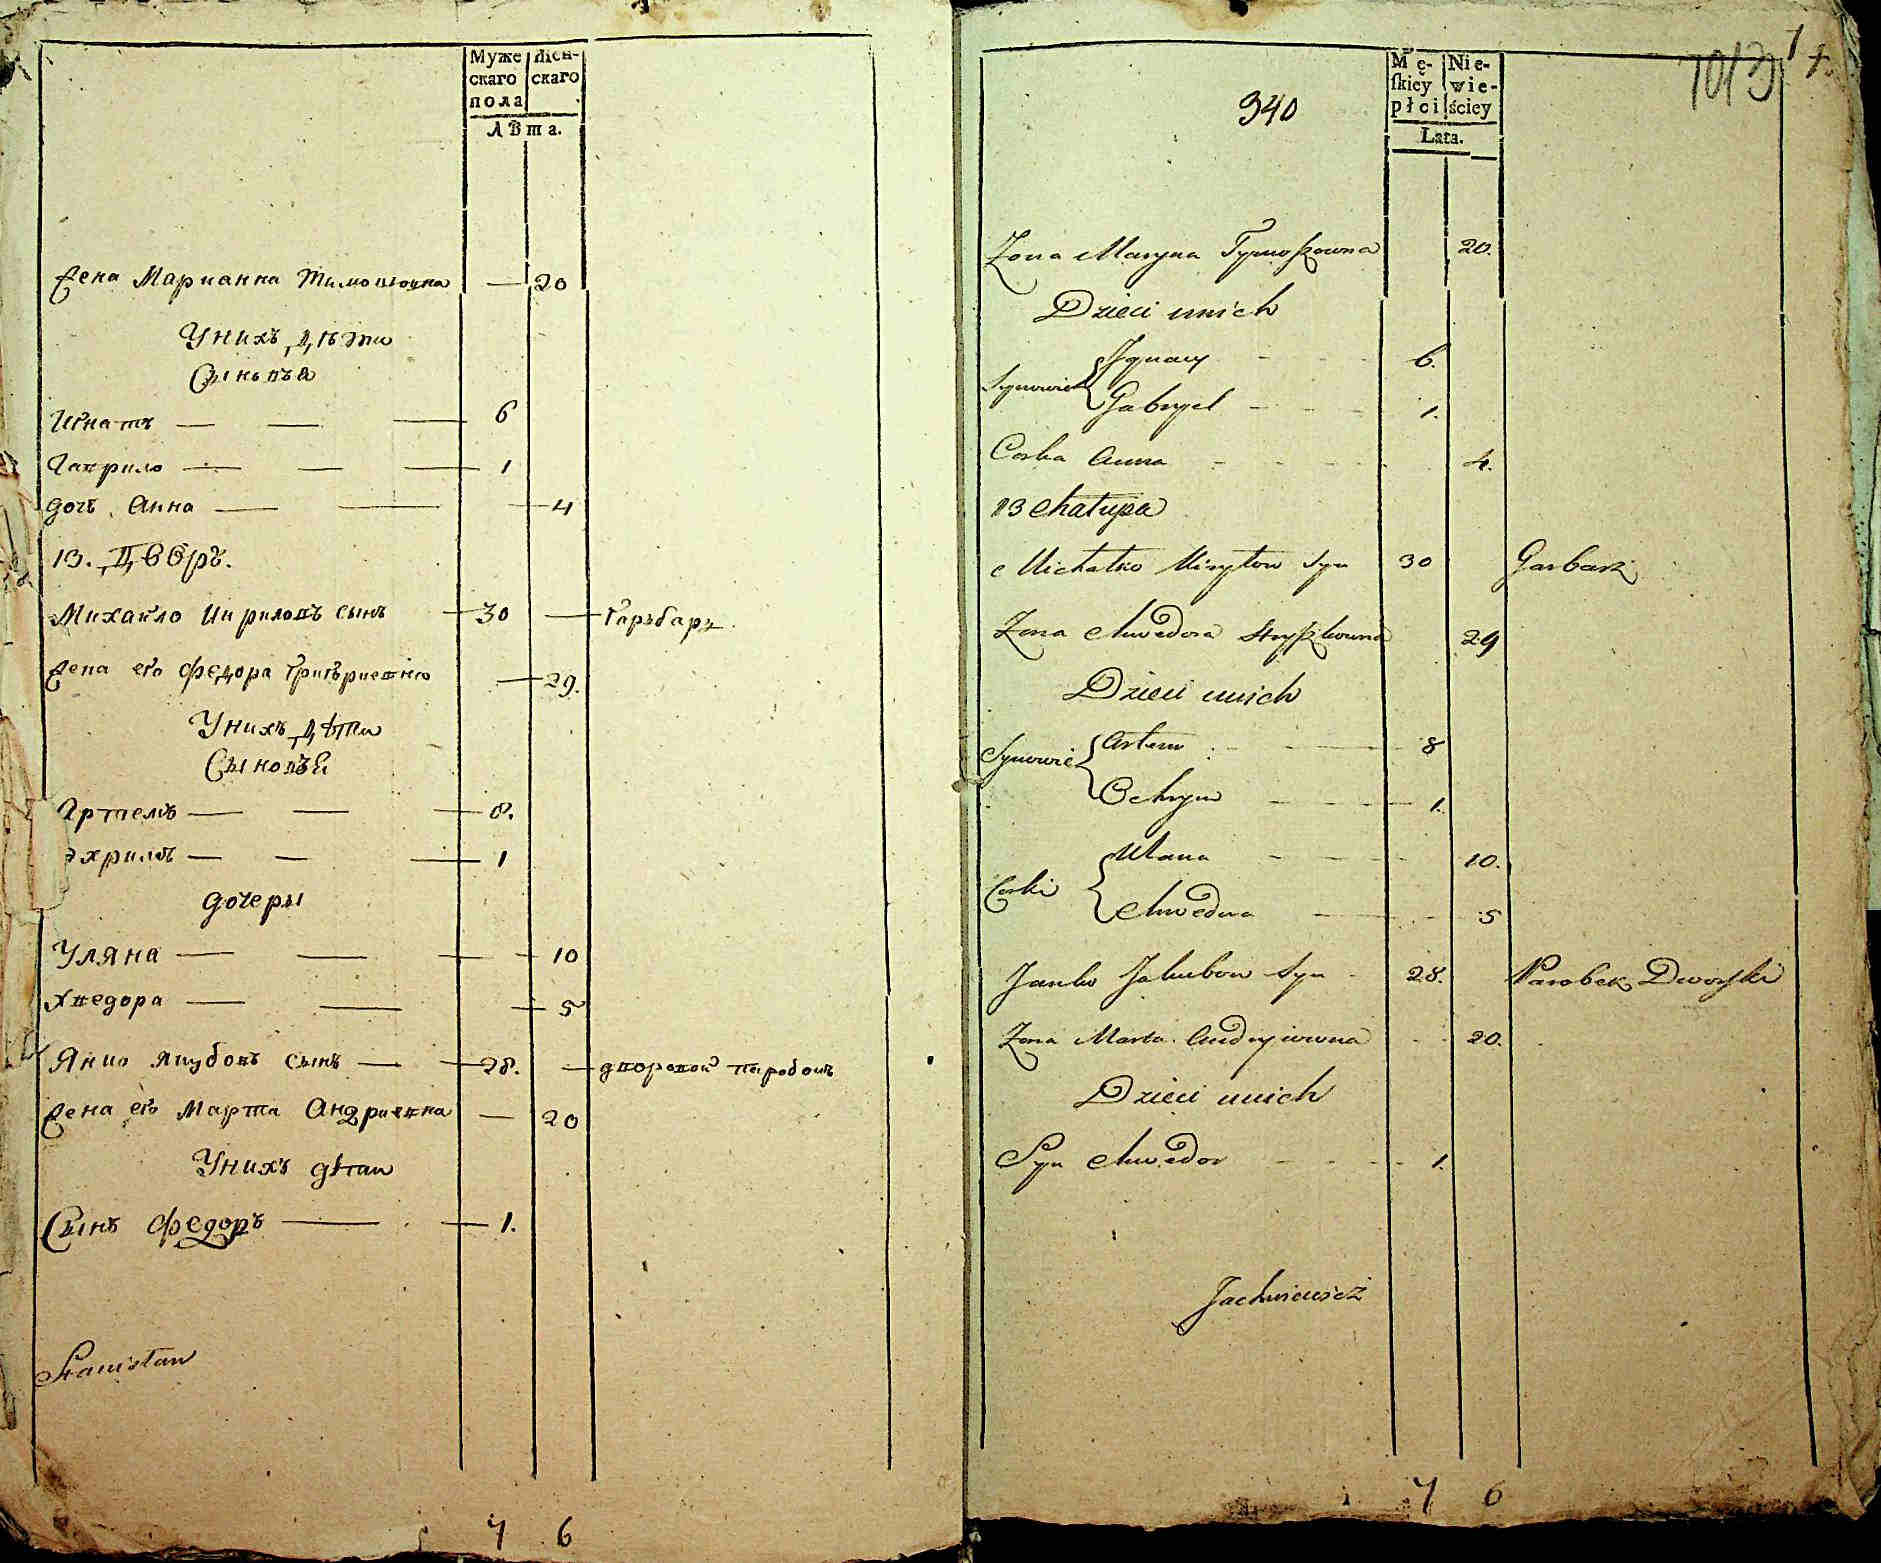 Муже Жен-
скаго скаго
пола
лѣта.
Жена Марианна Тимошовна — 20
У нихъ дѣти
Сыновъя
Игнатъ — — — 6
Гаврило — — — 1
дочь Анна — — — 4
13. Дворъ.
Михайло Кириловъ сынъ — 30 — Гарбаръ
Жена его Федора Григориевна — 29.
У нихъ дѣти
Сыновъя
Артемъ — — — 8.
— — — 1
дочеры
Уляна — — — 10
Хведора — — — 5
Янко Якубовъ сынъ — — 28. — дворовой паробокъ
Жена его Марта Андриевна — 20
У нихъ дѣти
Сынъ Федоръ — — 1.
Stanisław
7 6
1013
340
Mę- Nie-
ſkiey wie-
płci ściey
Lata.
Zona Maryna Tymoszowna 20.
Dzieci u nich
Synowie Ignacy - - 6.
Gabryel - - - 1.
Corka Anna - - - 4.
13 Chałupa
Michałko Kiryłow Syn 30 Garbarz
Zona Chwedora 29
Dzieci u nich
Synowie Artem - - 8
Ochrym - - - 1.
Corki Ulana - - - 10.
Chwedora - - 5
Janko Jakubow Syn - 28. Parobek Dworski
Zona Marta Andryiowna - - 20.
Dzieci u nich
Syn Chwedor - - - 1.
Jachniewicz
7 6